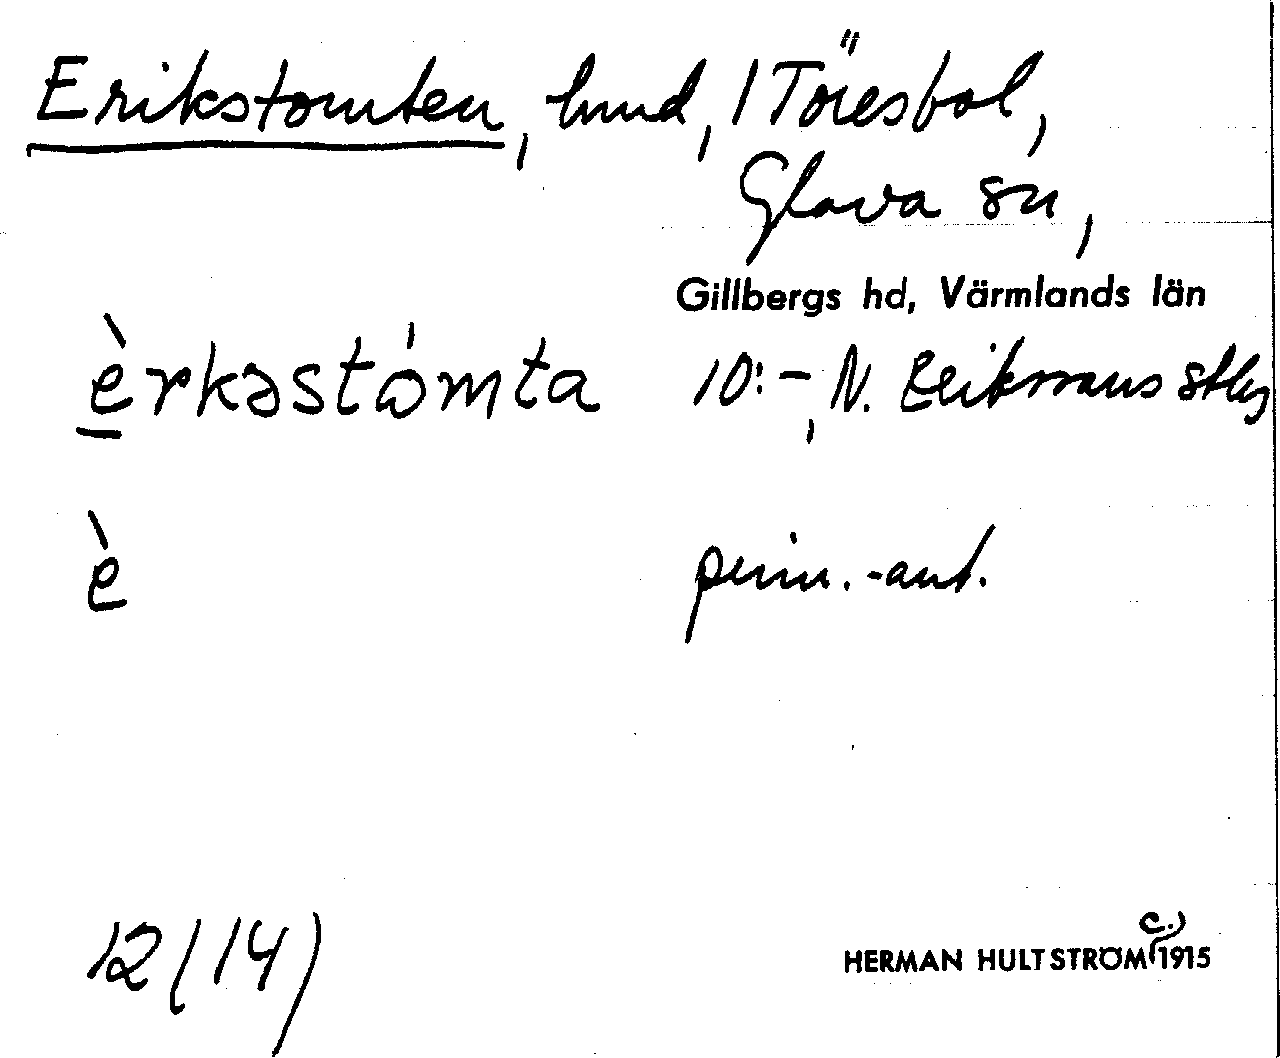 Erikstomten, hmd, 1 Töresbol,
Glava sn,
Gillbergs hd, Värmlands län
èrkəstómta 10:-, N. Erikssons stbg
è penn. -ant.
12 (14)
HERMAN HULTSTRÖM (c.) 1915